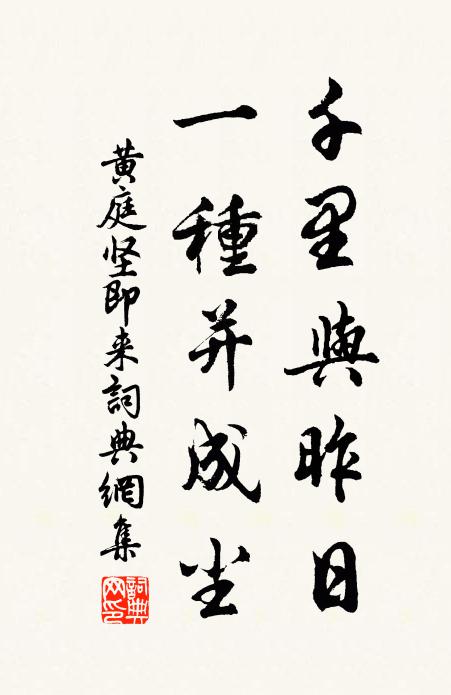 千里與昨日
一種并成尘
黄庭坚即来詞典網集
詞典網印